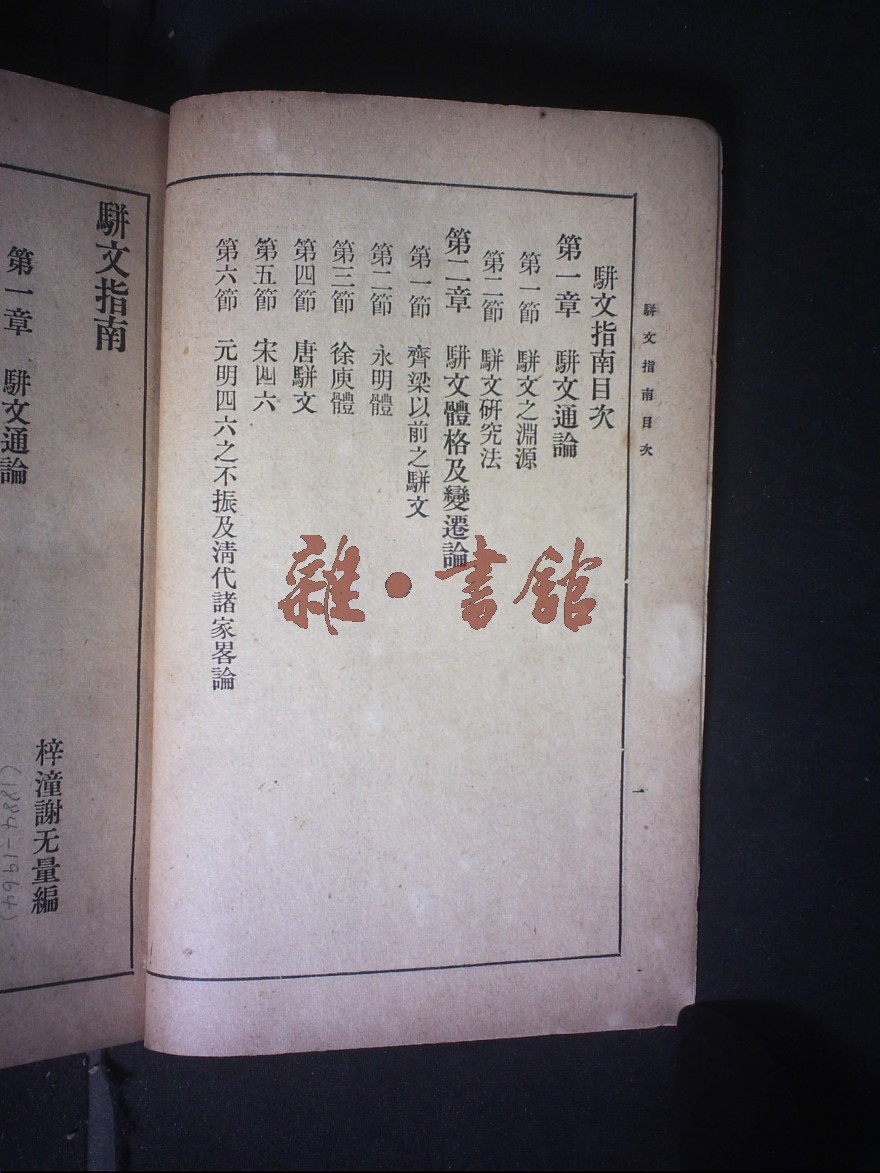 駢文指南目次
一
駢文指南目次
第一章　駢文通論
第一節　駢文之淵源
第二節　駢文研究法
第二章　駢文體格及變遷論
第一節　齊梁以前之駢文
第二節　永明體
第三節　徐庾體
第四節　唐駢文
第五節　宋四六
第六節　元明四六之不振及清代諸家畧論
雜·書館
駢文指南
梓潼謝无量編
(1884-1964)
第一章　駢文通論